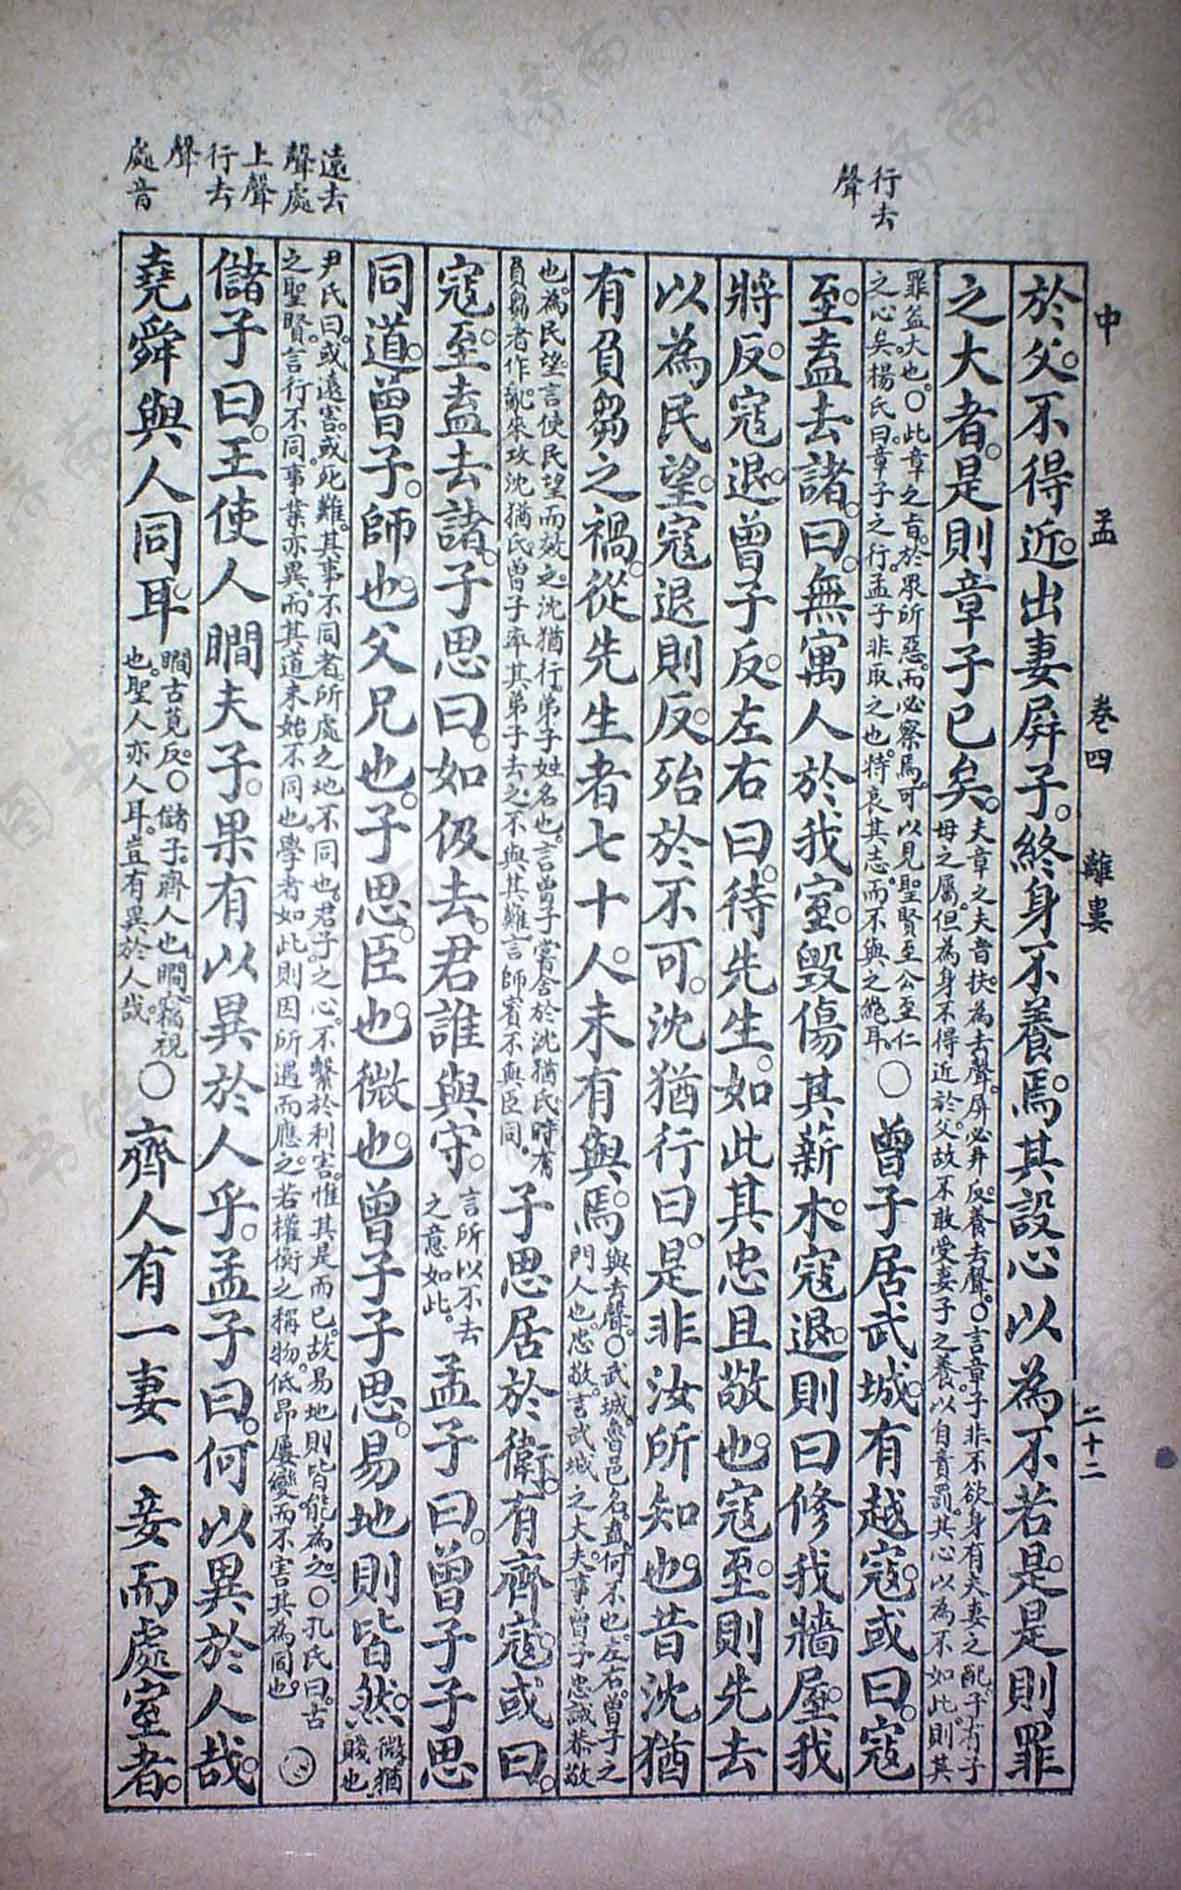 中 孟 卷四 離婁 二十二
行去
聲
遠去
聲處
上聲
行去
聲
處音
於父。不得近。出妻屏子。終身不養焉。其設心以為不若是。是則罪
之大者。是則章子已矣。夫章之夫音扶。為去聲。屏必井反。養去聲。○言章子非不欲身有夫妻之配。子有子
母之屬。但為身不得近於父。故不敢受妻子之養。以自責罰。其心以為不如此。則其
罪益大也。○此章之旨。於眾所惡。而必察焉。可以見聖賢至公至仁
之心矣。楊氏曰。章子之行。孟子非取之也。特哀其志。而不與之絕耳。○曾子居武城。有越寇。或曰。寇
至。盍去諸。曰。無寓人於我室。毀傷其薪木。寇退。則曰修我牆屋。我
將反。寇退。曾子反。左右曰。待先生。如此其忠且敬也。寇至。則先去
以為民望。寇退則反。殆於不可。沈猶行曰。是非汝所知也。昔沈猶
有負芻之禍。從先生者七十人。未有與焉。與去聲。○武城。魯邑名。盍。何不也。左右。曾子之
門人也。忠敬。言武城之大夫。事曾子。忠誠恭敬
也。為民望。言使民望而效之。沈猶行。弟子姓名也。言曾子嘗舍於沈猶氏。時有
負芻者作亂。來攻沈猶氏。曾子率其弟子去之。不與其難。言師賓不與臣同。子思居於衛。有齊寇。或曰。
寇至。盍去諸。子思曰。如伋去。君誰與守。言所以不去
之意如此。孟子曰。曾子子思
同道。曾子。師也。父兄也。子思。臣也。微也。曾子子思。易地則皆然。微猶
賤也
尹氏曰。或遠害。或死難。其事不同者。所處之地不同也。君子之心。不繫於利害。惟其是而已。故易地則皆能為之。○孔氏曰。古
之聖賢。言行不同。事業亦異。而其道未始不同也。學者如此。則因所遇而應之。若權衡之稱物。低昂屢變。而不害其為同也。○
儲子曰。王使人瞷夫子。果有以異於人乎。孟子曰。何以異於人哉。
堯舜與人同耳。瞷古莧反。○儲子。齊人也。瞷。竊視
也。聖人亦人耳。豈有異於人哉。○齊人有一妻一妾而處室者。